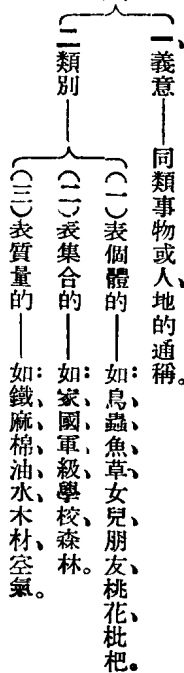 一、義意——同類事物或人、地的通稱。
二類別
(一)表個體的——如：鳥、蟲、魚、草、女兒、朋友、桃花、枇杷。
(二)表集合的——如：家、國、軍、級、學校、森林。
(三)表質量的——如：鐵、麻、棉、油、水、木材、空氣。